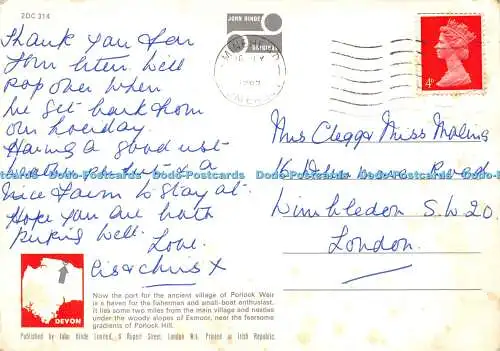 2DC 314
Thank you for
your letter. Will
pop over when
we get back from
our holiday.
Having a good rest
weather perfect & a
nice farm to stay at.
Hope you are both
keeping well.
Love
Cis & Chris X
JOHN HINDE
ORIGINAL
MINEHEAD
JLY
4D
Mrs Clegg & Miss Maling
16
Road
Wimbledon S.W.20.
London.
Dodo-Postcards Dodo-Postcards Dodo-Postcards
DEVON
Now the port for the ancient village of Porlock Weir
is a haven for the fisherman and small-boat enthusiast.
It lies some two miles from the main village and nestles
under the woody slopes of Exmoor, near the fearsome
gradients of Porlock Hill.
Published by John Hinde Limited, 9 Rupert Street, London W1. Printed in Irish Republic.